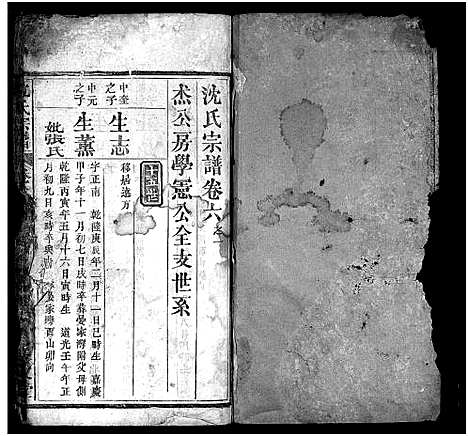 沈氏宗譜卷六之一
杰公房學憲公全支世系
十五世
中奎之子
生志
移居遠方
中元之子
生薰
字正南 乾隆庚辰年二月十一日巳時生 嘉慶
甲子年十一月初七日戌時卒葬晏家灣附父母側
妣張氏
乾隆丙寅年五月十六日寅時生 道光壬午年正
月初九日亥時卒與
家灣酉山卯向